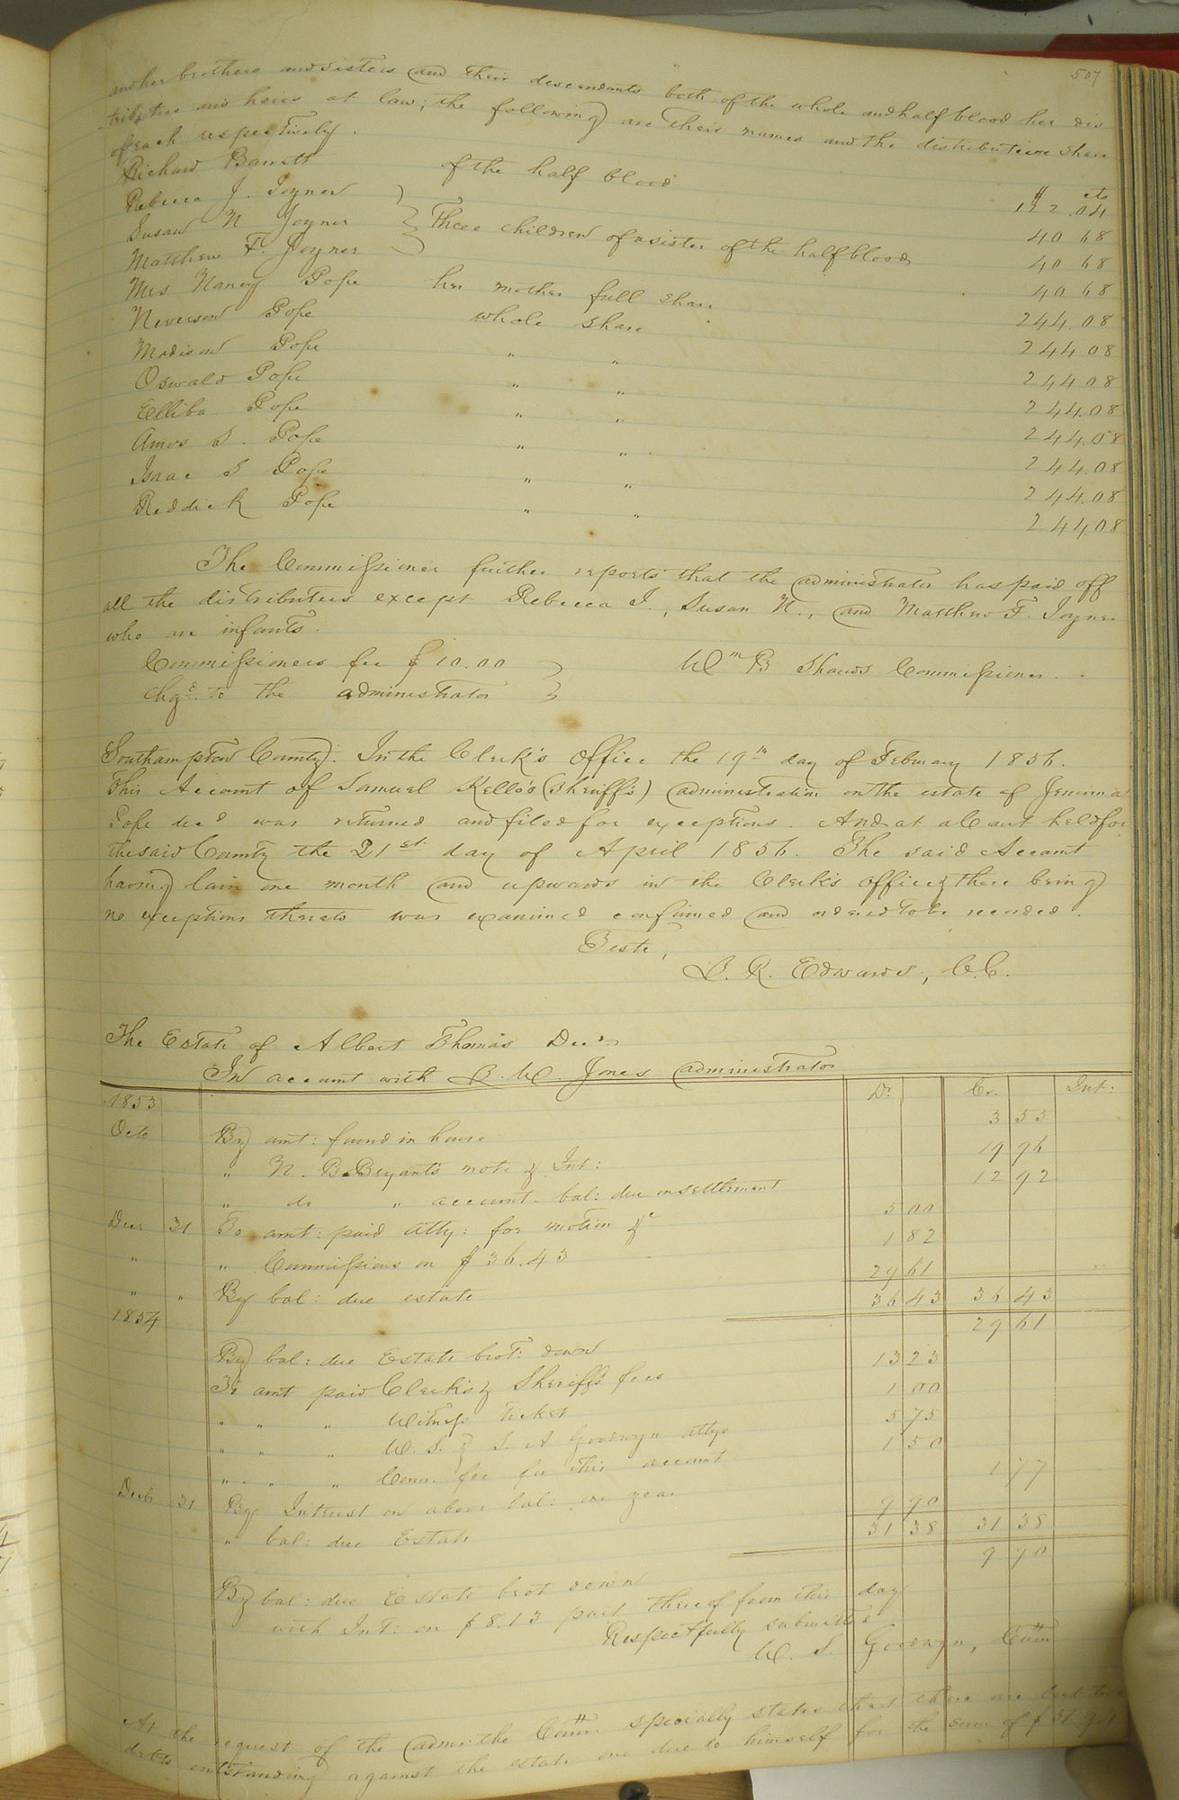 507
and her brothers and sisters and their descendants both of the whole and half blood her dis
tributees and heirs at law; the following are their names and the distributive share
of each respectively.
$ cts
Richard Barrett of the half blood 122.04
Rebecca J. Joyner 40 68
Susan N Joyner } Three children of a sister of the half blood 40 68
Matthew F. Joyner 40 68
Mrs Nancy Pope her mother full share 244.08
Neverson Pope whole share 244 08
Madison Pope " " 244 08
Oswald Pope " " 244.08
Elliba Pope " " 244.08
Amos S. Pope " " 244.08
Isaac S Pope " " 244.08
Reddick Pope " " 244 08
The Commissioner further reports that the administrator has paid off
all the distributees except Rebecca J., Susan N., and Matthew F. Joyner
who are infants.
Commissioners fee $10.00 } Wm B Shands Commissioner.
chgd. to the administrator }
Southampton County. In the Clerk's Office the 19th day of February 1856.
This Account of Samuel Kello's (Sheriff's) administration on the estate of Jemima
Pope decd was returned and filed for exceptions. And at a Court held for
the said County the 21st day of April 1856. The said Account
having lain one month and upwards in the Clerk's office & there being
no exceptions thereto was examined confirmed and ordered to be recorded.
Teste,
L. R. Edwards, C.C.
The Estate of Albert Thomas Decd
In account with B. W. Jones administrator
Dr Cr. Int:
1853
Octo By amt: found in house 3 55
" N. B. Bryant's note & Int: 19 96
" do " account bal: due on settlement 12 92
Decr 31 To amt: paid atty: for motion &c 5 00
" " Commissions on $36.43 1 82
" " By bal: due estate 29 61
36 43 36 43
1854
By bal: due Estate brot: down 29 61
To amt paid Clerk's & Sheriff's fees 13 23
" " " Witness Ticket 1 00
" " " W. S. & S. A Goodwyn attys 5 75
" " " Comr. fee for this account 1 50
Decb 31 By Interest on above bal: one year 1 77
" bal: due Estate 9 90
31 38 31 38
By bal: due Estate brot down 9 90
with Int: on $8.13 part thereof from this day
Respectfully submitted
W. S. Goodwyn, Comr
At the request of the admr the Comr. specially states that there are but two
debts outstanding against the estate one due to himself for the sum of